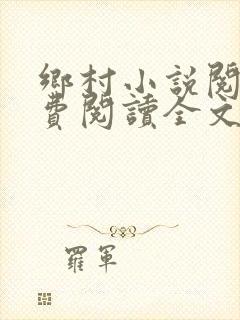 鄉村小說閱
費閱讀全文
羅軍